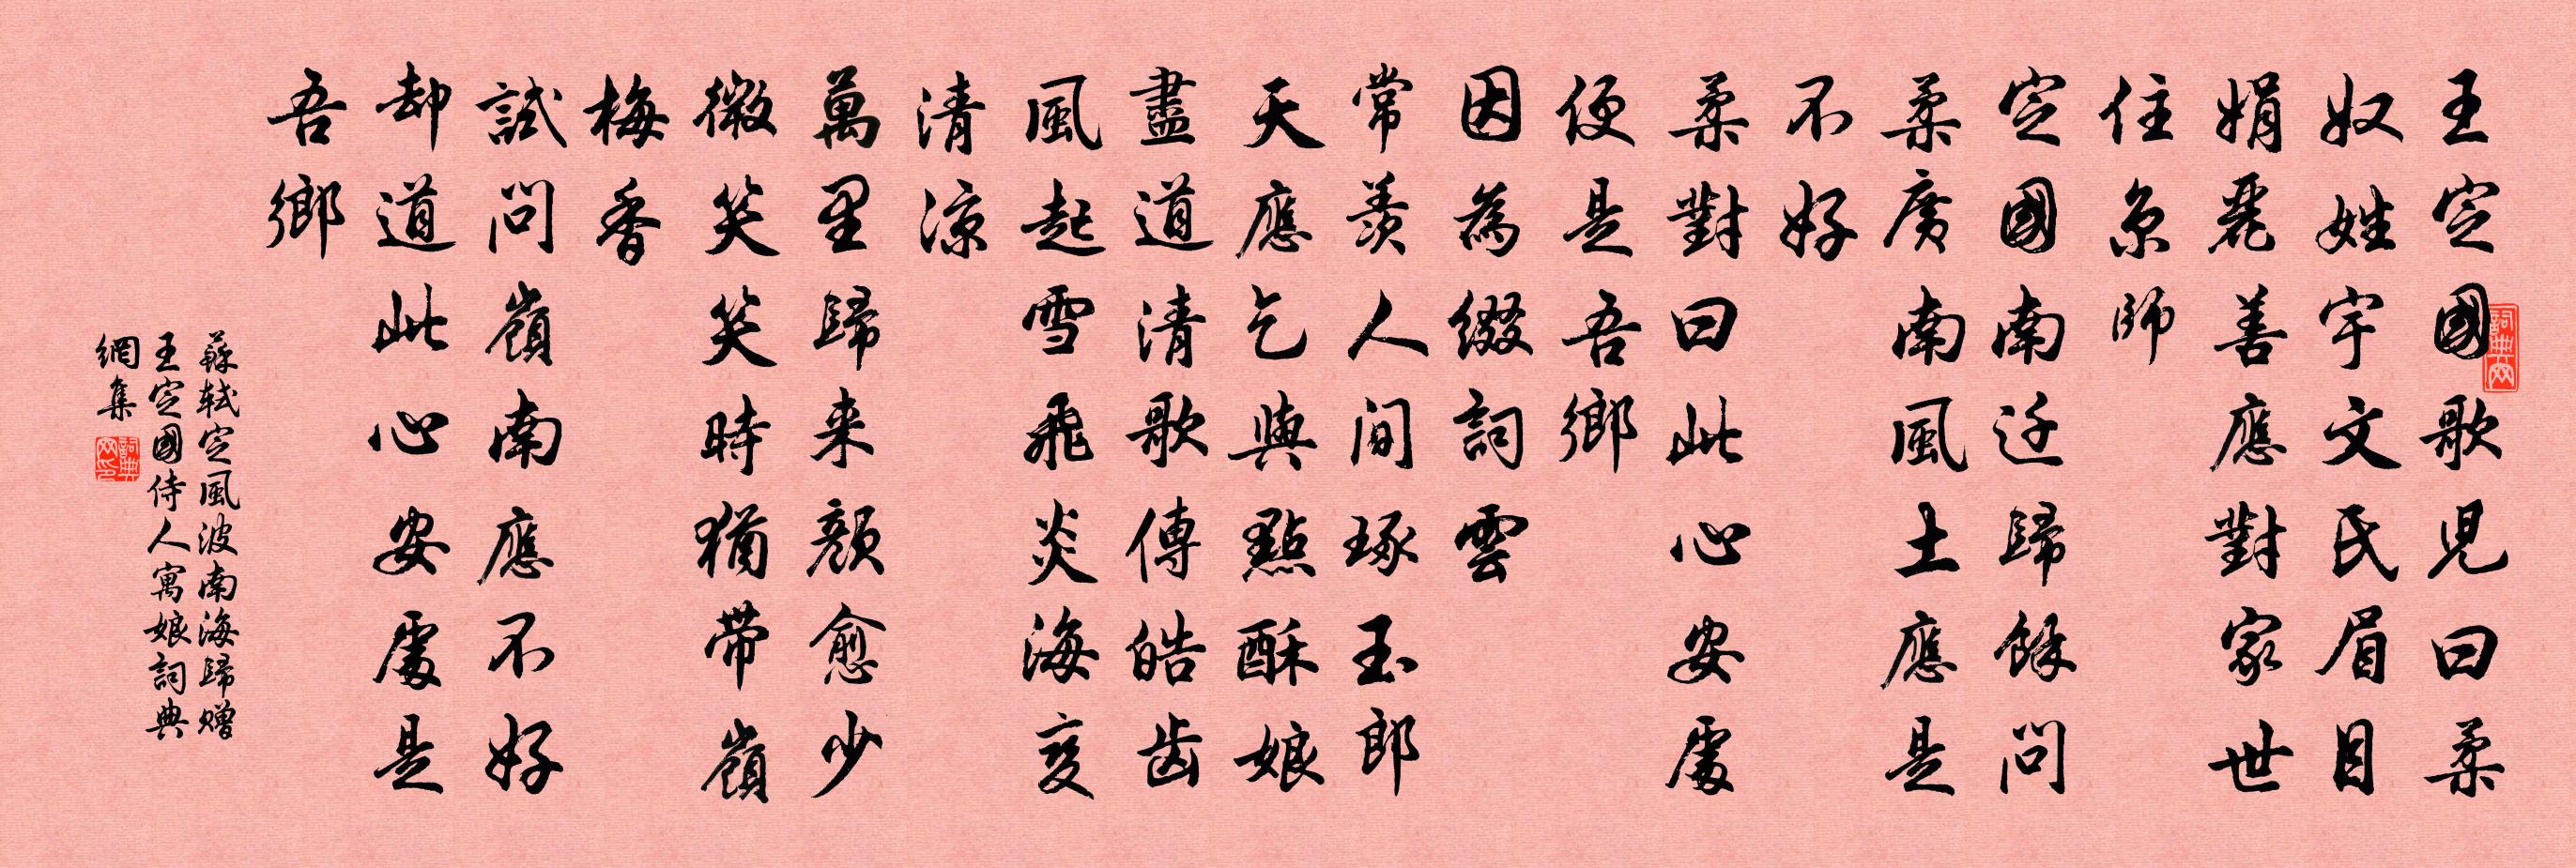 王定國歌児曰柔
奴姓宇文氏眉目
娟麗善應對家世
住京師
定國南迁歸餘問
柔廣南風土應是
不好
柔對曰此心安處
便是吾鄉
因為綴詞雲
常羨人间琢玉郎
天應乞與點酥娘
盡道清歌傳皓齒
風起雪飛炎海變
清凉
萬里歸来顏愈少
微笑笑時猶帶嶺
梅香
試問嶺南應不好
却道此心安處是
吾鄉
蘇軾定風波南海歸贈
王定國侍人寓娘詞典
網集
詞典网
詞典网印